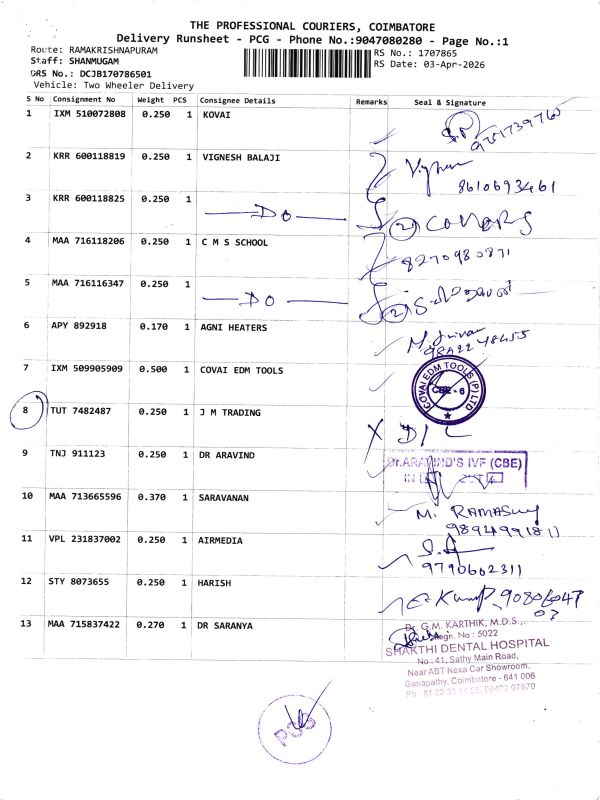 THE PROFESSIONAL COURIERS, COIMBATORE
Delivery Runsheet - PCG - Phone No.:9047080280 - Page No.:1
Route: RAMAKRISHNAPURAM
RS No.: 1707865
Staff: SHANMUGAM
RS Date: 03-Apr-2026
DRS No.: DCJB170786501
Vehicle: Two Wheeler Delivery
S No Consignment No Weight PCS Consignee Details Remarks Seal & Signature
1 IXM 510072808 0.250 1 KOVAI
2 KRR 600118819 0.250 1 VIGNESH BALAJI
8610693461
3 KRR 600118825 0.250 1 DO (2)
4 MAA 716118206 0.250 1 C M S SCHOOL
8270980871
5 MAA 716116347 0.250 1 DO (2)
6 APY 892918 0.170 1 AGNI HEATERS
7 IXM 509905909 0.500 1 COVAI EDM TOOLS
COVAI EDM TOOLS (P) LTD
CBE - 6
8 TUT 7482487 0.250 1 J M TRADING X D/L
9 TNJ 911123 0.250 1 DR ARAVIND
Dr.ARAVIND'S IVF (CBE)
10 MAA 713665596 0.370 1 SARAVANAN
M. RAMASWY
11 VPL 231837002 0.250 1 AIRMEDIA
9790602311
12 STY 8073655 0.250 1 HARISH
13 MAA 715837422 0.270 1 DR SARANYA
Dr. G.M. KARTHIK, M.D.S.,
Regn. No : 5022
SHAKTHI DENTAL HOSPITAL
No : 41, Sathy Main Road,
Near ABT Nexa Car Showroom,
Ganapathy, Coimbatore - 641 006